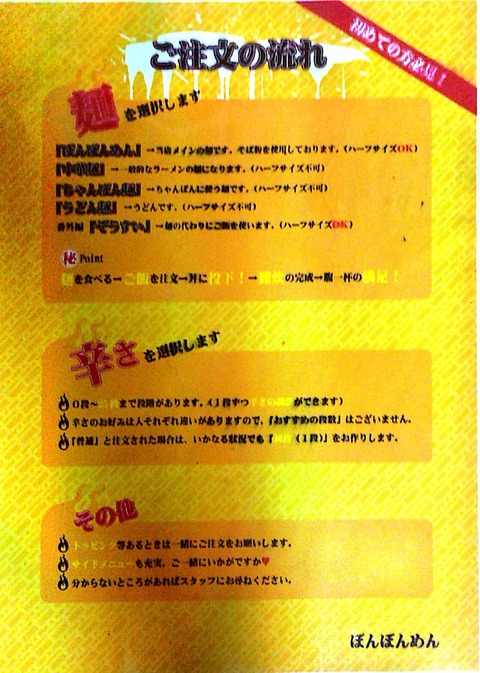 初めての方必見！
ご注文の流れ
麺を選択します
『ぼんぼんめん』→当店メインの麺です。そば粉を使用しております。(ハーフサイズOK)
『中華麺』→一般的なラーメンの麺になります。(ハーフサイズ不可)
『ちゃんぽん麺』→ちゃんぽんに使う麺です。(ハーフサイズ不可)
『うどん麺』→うどんです。(ハーフサイズ不可)
番外編『ぞうすい』→麺の代わりにご飯を使います。(ハーフサイズOK)
㊙Point
麺を食べる→ご飯を注文→丼に投下！→雑炊の完成→腹一杯の満足！
辛さを選択します
0段～段まで段階があります。(1段ずつ辛さの調整ができます)
辛さのお好みは人それぞれ違いがありますので、『おすすめの段数』はございません。
『普通』と注文された場合は、いかなる状況でも『(1段)』をお作りします。
その他
トッピング等あるときは一緒にご注文をお願いします。
サイドメニューも充実。ご一緒にいかがですか♥
分からないところがあればスタッフにお尋ねください。
ぼんぼんめん